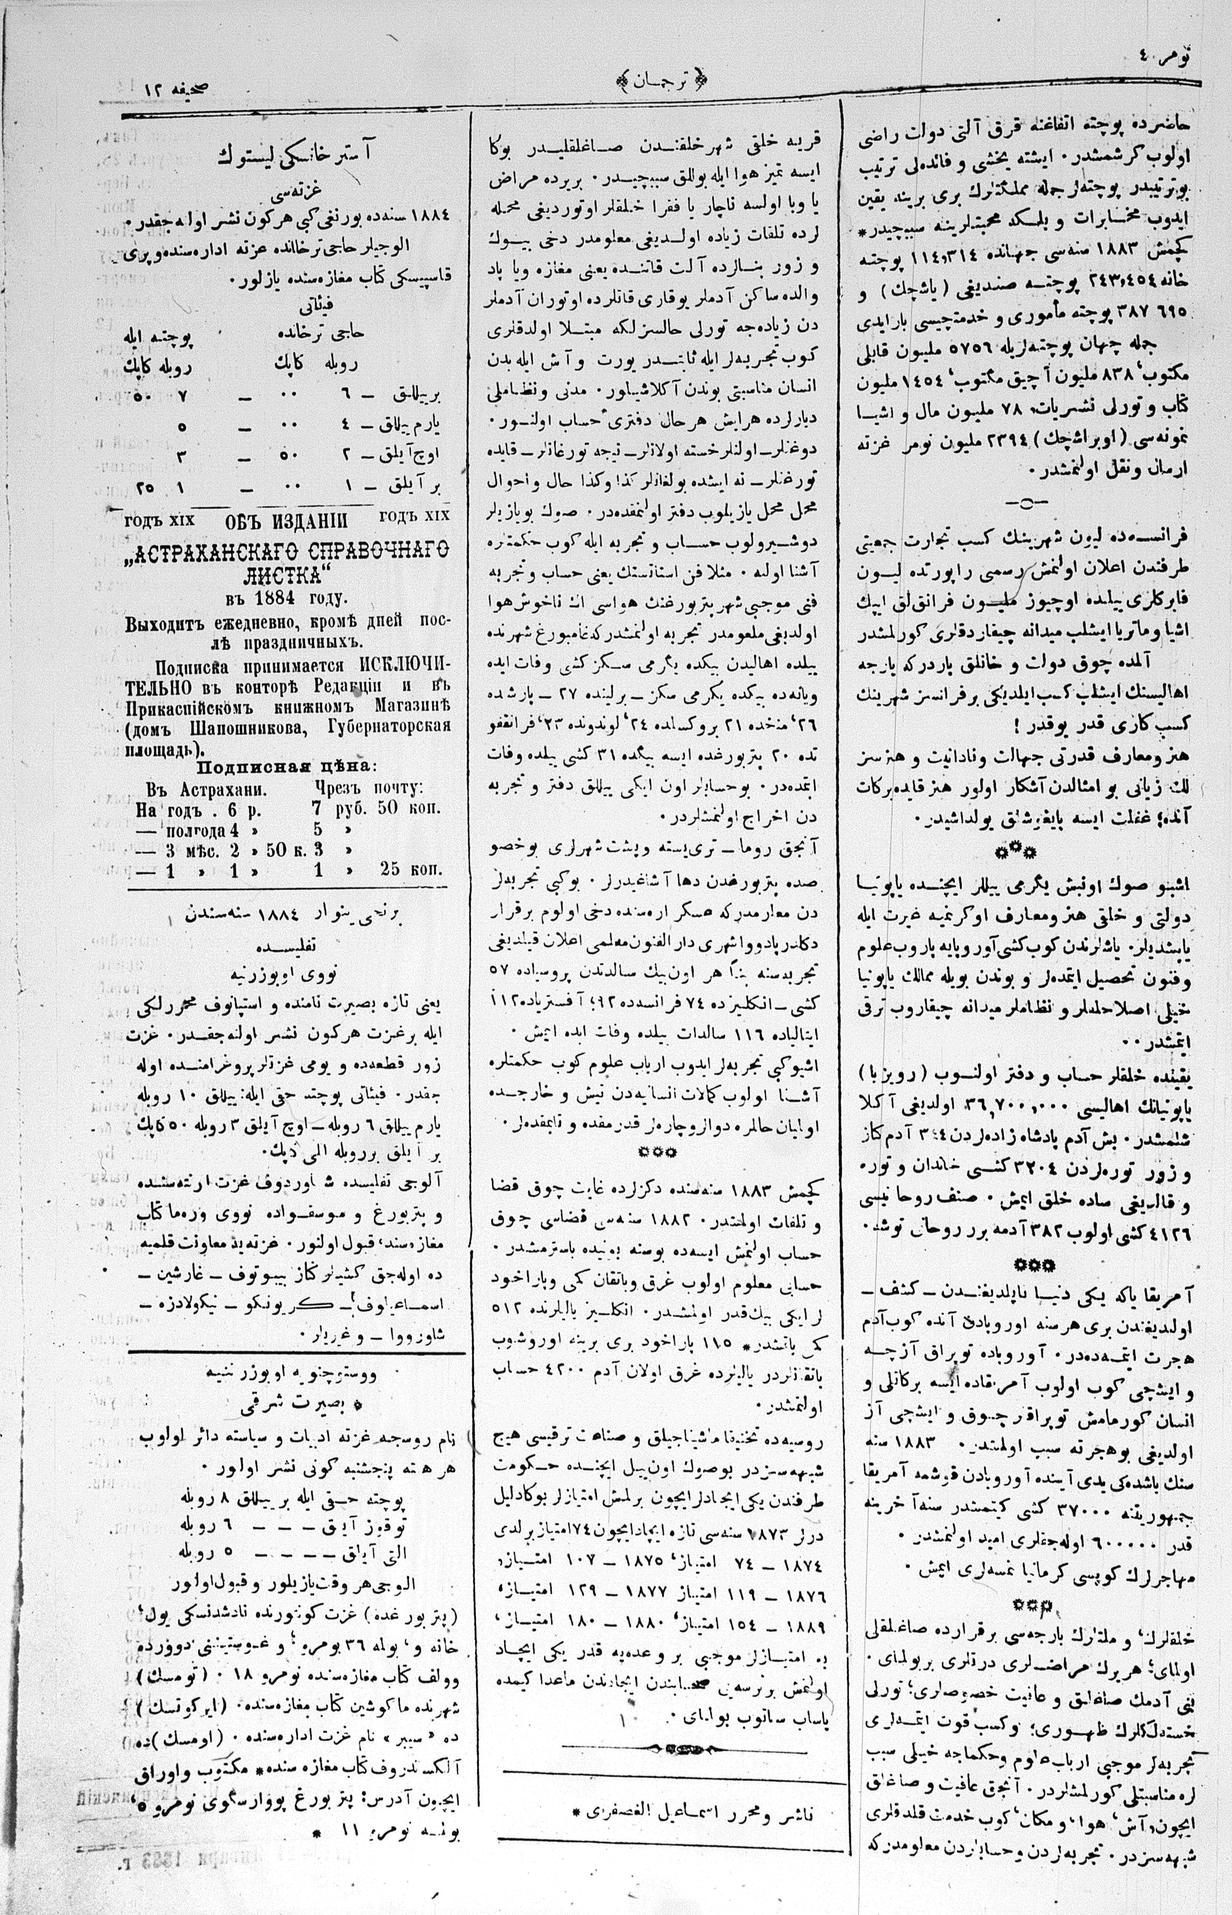 نومر ٤٠
﴿ ترجمان ﴾
صحیفه ١٢
حاضرده پوچته اتفاغنه قرق آلتی دولت راضی
اولوب کرشمشدر. ایشته یخشی و فائده‌لی ترتیب
بوترتیبدر پوچته‌لر جمله مملکتلرک بری برینه یقین
ایدوب مخابرات و بلسکه محبتلرینه سببچیدر*
کچمش ١٨٨٣ سنه‌سی جهانده ١١٤,٣١٤ پوچته
خانه ٢٤٣,٤٥٤ پوچتـه صندیغی (یاشچك) و
٣٨٧ ٦٩٥ پوچته مأموری و خدمتچیسی بار ایدی
جمله جهان پوچته‌لریله ٥٧٥٦ ملیون قابلی
مکتوب، ٨٣٨ ملیون آچیق مکتوب، ١٤٥٤ ملیون
کتاب و تورلی نشریات، ٧٨ ملیون مال و اشیـا
نمونه‌سی (اوبراشچك) ٢٣٩٤ ملیون نومر غزته
ارمان ونقل اولنمشدر.
فرانسـه‌ده لیون شهرینك کسب تجارت جمعیتی
طرفندن اعلان اولنمش رسمی راپورتده لیـون
فابرکلری ییلده اوچیوز ملیـون فرانق‌لق ایپك
اشیا وماتریا ایشلب میدانه چیقاردقلری کورلمشدر
آلمده چوق دولت و خانلق باردرکه بارچه
اهالیسنك ایشلب کسب ایلدیکی بر فرانسز شهرینك
کسب کاری قدر یوقدر!
هنر ومعارف قدرتی جهالت ونادانیت و هنرسز
لك زیانی بو امثالدن آشکار اولور هنر فایده برکات
آنده؛ غفلت ایسه بایغوشلق یولداشیدر.
***
اشبو صوك اونبش یگرمی ییللر ایچنـده یاپونیا
دولتی و خلقی هنر ومعارف اوکرنمیه غیرت ایله
یاپشدیلر. یاشلرندن کوب کشی آوروپایه باروب علوم
وفنون تحصیل ایتمه‌لر و بوندن بویله ممالك یاپونیا
خیلی اصلاحلر و نظاملر میدانه چیقاروب ترقی
ایتمشدر..
یقینده خلقلر حساب و دفتر اولنـوب (رویزیا)
یاپونیانك اهالیسی ٣٦,٧٠٠,٠٠٠ اولدیغی آکلا
شلمشدر. بش آدم پادشاه زاده‌لردن ٣٤٤ آدم کناز
و زور توره‌لردن ٣٢٠٤ کشـی خاندان و توره
و قالدیغی ساده خلق ایمش. صنف روحانیسی
٤١٢٦ کشی اولوب ٣٨٢ آدمه برر روحانی توشه.
***
آمریقا یاکه یکی دنیـا تاپلدیغنـدن ـ کشف ـ
اولدیغندن بری هر سنه اوروپادن آنده کوب آدم
هجرت ایتمـه‌ده‌در. آوروپاده توپراق آز چـه
و ایشچی کوب اولوب آمریقاده ایسه برکانلی و
انسان کورمامش توپراقلر چـوق و ایشچی آز
اولدیغی بو هجرته سبب اولمشدر. ١٨٨٣ سنه
سنك باشده‌کی یدی آینده آوروپادن قوشمه آمریقا
جمهوریتنه ٣٧٠٠٠ کشی کیتمشدر سنه آخرینه
قدر ٦٠٠٠٠٠ اوله‌جقلری امید اولنمشدر.
مهاجرلرك کوپسی کرمانیا نمسه‌لری ایمش.
***
خلقلرك، و ملتلرك بارجه‌سی برقرارده صاغلقلی
اولمای؛ هر یرك مراضـلری دردلری بر بولمای.
بنی آدمك صاغلق و عافیت خصوصلری؛ تورلی
خسته‌لکلرك ظهـوری؛ وکسب قوت ایتمـه‌لری
تجربه‌لر موجبی ارباب علوم وحکماجه خیلی سبب
لره مناسبتلی کورلمشلردر. آنجق عافیت و صاغلق
ایچون، آش، هوا، و مکان، کوب خدمت قلدقلری
شبهه سزدر. تجربه‌لردن وحسابلردن معلومدر که
قریه خلقی شهر خلقندن صـاغلقلیـدر بوکا
ایسه تمیز هوا ایله بوللق سببچیـدر. بر یرده مراض
یا وبا اولسه ناچار یا فقرا خلقلر اوتوردیغی محـله
لرده تلفات زیاده اولـدیغی معلومدر دخی بیـوك
و زور بنـالرده آلت قاتنـده یعنی مغازه ویا پاد
والده ساکن آدملر یوقاری قاتلرده اوتوران آدملر
دن زیاده‌جه تورلی حالسزلکه مبتـلا اولدقلری
کوب تجربه‌لر ایله ثابتـدر یورت و آش ایله بدن
انسان مناسبتی بوندن آکلاشیلور. مدنی و نظاملی
دیارلرده هر ایش هر حال دفتری حساب اولنـور.
دوغنلر ـ اولنلر خسته اولانلر ـ نیجه تورغانلر ـ قایده
تورغنلر ـ نه ایشده بولغانلر کذا وکذا حال و احوال
محل محل یازیلوب دفتر اولنمقده‌در. صوك بو یازیلر
دوشیرولوب حسـاب و تجربه ایله کوب حکمتلره
آشنا اولنه. مثلا فن استاتستك یعنی حساب وتجربه
فنی موجبی شهر پتربورغنك هواسی اك ناخوش هوا
اولدیغی ملعومدر تجربه اولنمشدر که غامبورغ شهرنده
ییلده اهالیدن بیکده یگرمی سـکز کشی وفات ایده
ویانه‌ده بیکده یکرمی سکز ـ برلینده ٢٧ ـ پارشده
٢٦، منخده ٢١ بروکسلده ٢٤، لوندونده ٢٣، فرانقفو
تده ٢٠ پتربورغده ایسه بیگده ٣١ کشی ییلده وفات
ایتمه‌در. بو حسابلر اون ایکی ییللق دفتر و تجربه
دن اخراج اولنمشلردر.
آنجق روما ـ تری‌یسته و پشت شهرلری بو خصو
صده پتربورغدن دها آشاغیدرلر. بوکبی تجربه‌لر
دن معلومدر که عسکر اره‌سنده دخی اولوم برقرار
دکلدر پادووا شهری دار الفنون معلمی اعلان قیلدیغی
تجربه‌سنه بنـاً هر اون‌بیك سالدتدن پروسیاده ٥٧
کشی ـ انکلیزده ٧٤ فرانسه‌ده ٩٢؛ آفستریاده ١١٢
ایتالیاده ١١٦ سالدات ییلده وفات ایده ایمش.
اشبوکبی تجربه‌لر ایدوب ارباب علوم کوب حکمتلره
آشـنا اولوب کمالات انسانیه‌دن تیش و خارجـده
اولمیان حاللره دوالر وچاره‌لر قدرمقده و تایمقده‌لر.
***
کچمش ١٨٨٣ سنه‌سنده دکزلرده غایت چوق قضا
و تلفات اولمشدر. ١٨٨٢ سنه‌سی قضاسی چوق
حساب اولنمش ایسه‌ده بوسنه بونیده باسترمشدر.
حسابی معلوم اولوب غرق وباتقان کمی وپاراخود
لر ایکی بیك قدر اولمشـدر. انکلـیز یالیلرنده ٥١٢
کمی باتمشدر* ١١٥ پاراخود بری برینه اوروشوب
باتقانلردر یالیلرده غرق اولان آدم ٤٢٠٠ حساب
اولنمشدر.
روسیه‌ده تخنیقا ماشیناجیلق و صناعت ترقیسی هیچ
شبهه‌سزدر بوصوك اون ییل ایچنـده حکومت
طرفندن یکی ایجادلر ایچون برلمش امتیازلر بوکا دلیل
درلر ١٨٧٣ سنه‌سی تازه ایجاد ایچون ٧٤ امتیاز برلدی
١٨٧٤ ـ ٧٤ امتیاز، ١٨٧٥ ـ ١٠٧ امتیـاز،
١٨٧٦ ـ ١١٩ امتیاز ١٨٧٧ ـ ١٢٩ امتیـاز،
١٨٨٩ ـ ١٥٤ امتیاز، ١٨٨٠ ـ ١٨٠ امتیـاز،
بو امتیازلر موجبی بر وعده‌یه قدر یکی ایجـاد
اولنمش بر نرسه‌یی صـاحبندن ایجادندن ماعدا کیمده
یاساب ساتوب بولمای.
ناشر ومحرر اسمـاعیل الغصفری*
آسترخانسکی لیستوك
غزته‌سی
١٨٨٤ سنه‌ده بورنغی کبی هرکون نشر اوله‌جقدر.
الوجیلر حاجی ترخانده غزته اداره‌سنده و پری
قاسپیسکی کتاب مغازه‌سنده یازلور.
فیئاتی
حاجی ترخانده پوچتـه ایله
روبله کاپك روبله کاپك
بر ییللق ـ ٦ ٠٠ ـ ٧ ٥٠
یارم ییللق ـ ٤ ٠٠ ـ ٥
اوچ آیلق ـ ٢ ٥٠ ـ ٣
بر آیلق ـ ١ ٠٠ ـ ١ ٢٥
годъ XIX ОБЪ ИЗДАНІИ годъ XIX
„АСТРАХАНСКАГО СПРАВОЧНАГО
ЛИСТКА“
въ 1884 году.
Выходитъ ежедневно, кромѣ дней пос-
лѣ праздничныхъ.
Подписка принимается ИСКЛЮЧИ-
ТЕЛЬНО въ конторѣ Редакціи и въ
Прикаспійскомъ книжномъ Магазинѣ
(домъ Шапошникова, Губернаторская
площадь).
Подписная цѣна:
Въ Астрахани. Чрезъ почту:
На годъ . 6 р. 7 руб. 50 коп.
— полгода 4 » 5 »
— 3 мѣс. 2 » 50 к. 3 »
— 1 » 1 » 1 » 25 коп.
برنجی ینوار ١٨٨٤ سنه‌سندن
تفلیسـده
نووی اوبوزرنیه
یعنی تازه بصیرت نامنده و استپانوف محررلکی
ایله بر غزت هرکون نشـر اولنه‌جقـدر. غزت
زور قطعه‌ده و یومی غزتلر پروغرامنـده اوله
جقدر. فیئاتی پوچته حقی ایله: ییللق ١٠ روبله
یارم ییللق ٦ روبله ـ اوچ آیلق ٣ روبله ٥٠ کاپك
بر آیلق بر روبله اللی کاپك.
آلوجی تفلیسـده شاوردوف غزت ارتلنده
و پتربورغ و موسقـواده نووی وره‌ما کتاب
مغازه‌سنده قبول اولنور. غزته‌یه معاونت قلمیه
ده اوله‌جق کشیلر کناز بیبوتوف ـ غارشین ـ
اسمـاعیلوف ـ کریونکو ـ نیکولادزه ـ
شاورووا ـ و غیریلر.
ووستوچنویه اوبوزرنیـه
* بصیرت شرقی
نام روسجـه غزته ادبیات و سیاسته دائر اولوب
هر هفته پنجشنبه کونی نشر اولور.
پوچته حـقی ایله بر ییللق ٨ روبله
توقوز آیلق ـ ـ ـ ٦ روبله
التی آیلق ـ ـ ـ ـ ٥ روبله
الوجی هر وقت یازیلور وقبول اولور
(پتربورغده) غزت کونتورنده نادشدنسکی یول،
خانه و، بولمه ٣٦ نومرو؛ و غـوستیننی دوورده
وولف کتاب مغازه‌سنده نومرو ١٨. (تومسك)
شهرنده ماکوشین کتاب مغازه‌سنده. (ایرکوتسك)
ده «سیبر» نام غزت اداره‌سنده. (اومسك) ده
آلکسـندروف کتاب مغازه سنده* مکتوب واوراق
ایچون آدرس: پتربورغ پووارسکوی نومرو ٥
بولمه نومرو ١١ *